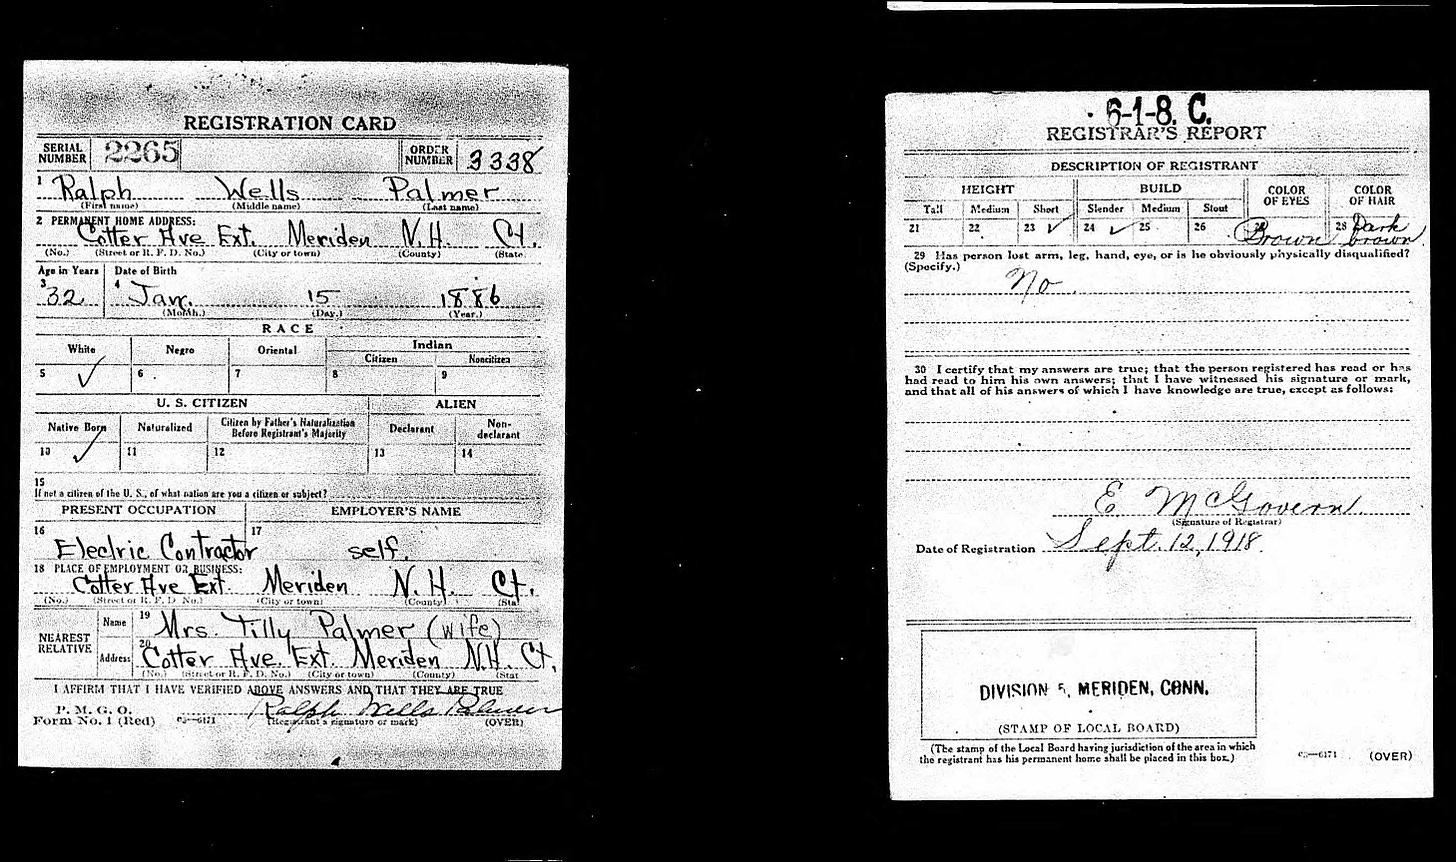 REGISTRATION CARD
SERIAL NUMBER 2265 ORDER NUMBER 3338
1 Ralph Wells Palmer
(First name) (Middle name) (Last name)
2 PERMANENT HOME ADDRESS:
Cotter Ave Ext. Meriden N.H. Ct.
(No.) (Street or R. F. D. No.) (City or town) (County) (State
Age in Years Date of Birth
3 32 4 Jan. 15 1886
(Month.) (Day.) (Year.)
RACE
White Negro Oriental Indian
Citizen Noncitizen
5 ✓ 6 7 8 9
U. S. CITIZEN ALIEN
Native Born Naturalized Citizen by Father's Naturalization Before Registrant's Majority Declarant Non-declarant
10 ✓ 11 12 13 14
15
If not a citizen of the U. S., of what nation are you a citizen or subject?
PRESENT OCCUPATION EMPLOYER'S NAME
16 17
Electric Contractor self.
18 PLACE OF EMPLOYMENT OR BUSINESS:
Cotter Ave Ext. Meriden N.H. Ct.
(No.) (Street or R. F. D. No.) (City or town) (County) (Stat
NEAREST RELATIVE
Name 19 Mrs. Tilly Palmer (wife)
Address 20 Cotter Ave. Ext. Meriden N.H. Ct.
(No.) (Street or R. F. D. No.) (City or town) (County) (Stat
I AFFIRM THAT I HAVE VERIFIED ABOVE ANSWERS AND THAT THEY ARE TRUE
P. M. G. O.
Form No. 1 (Red) 03—6171 Ralph Wells Palmer
(Registrant's signature or mark) (OVER)
6-1-8. C.
REGISTRAR'S REPORT
DESCRIPTION OF REGISTRANT
HEIGHT BUILD COLOR OF EYES COLOR OF HAIR
Tall Medium Short Slender Medium Stout
21 22 23 ✓ 24 ✓ 25 26 Brown 28 Dark brown
29 Has person lost arm, leg, hand, eye, or is he obviously physically disqualified?
(Specify.)
No
30 I certify that my answers are true; that the person registered has read or has
had read to him his own answers; that I have witnessed his signature or mark,
and that all of his answers of which I have knowledge are true, except as follows:
E. McGovern.
(Signature of Registrar)
Date of Registration Sept. 12, 1918.
DIVISION 5, MERIDEN, CONN.
(STAMP OF LOCAL BOARD)
(The stamp of the Local Board having jurisdiction of the area in which
the registrant has his permanent home shall be placed in this box.)
03—6171 (OVER)